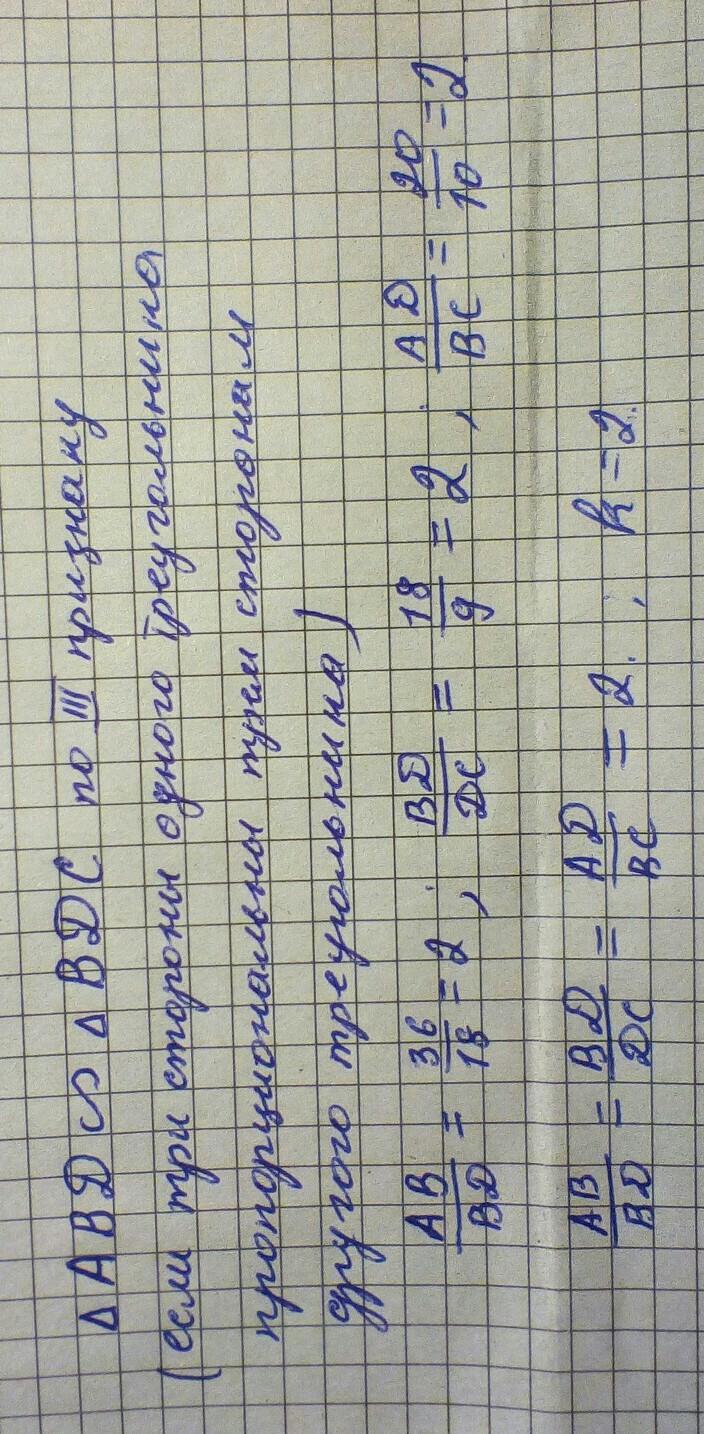 Δ ABD ∽ Δ BDC по III признаку
(если три стороны одного треугольника
пропорциональны трём сторонам
другого треугольника)
AB/BD = 36/18 = 2, BD/DC = 18/9 = 2, AD/BC = 20/10 = 2
AB/BD = BD/DC = AD/BC = 2, k = 2